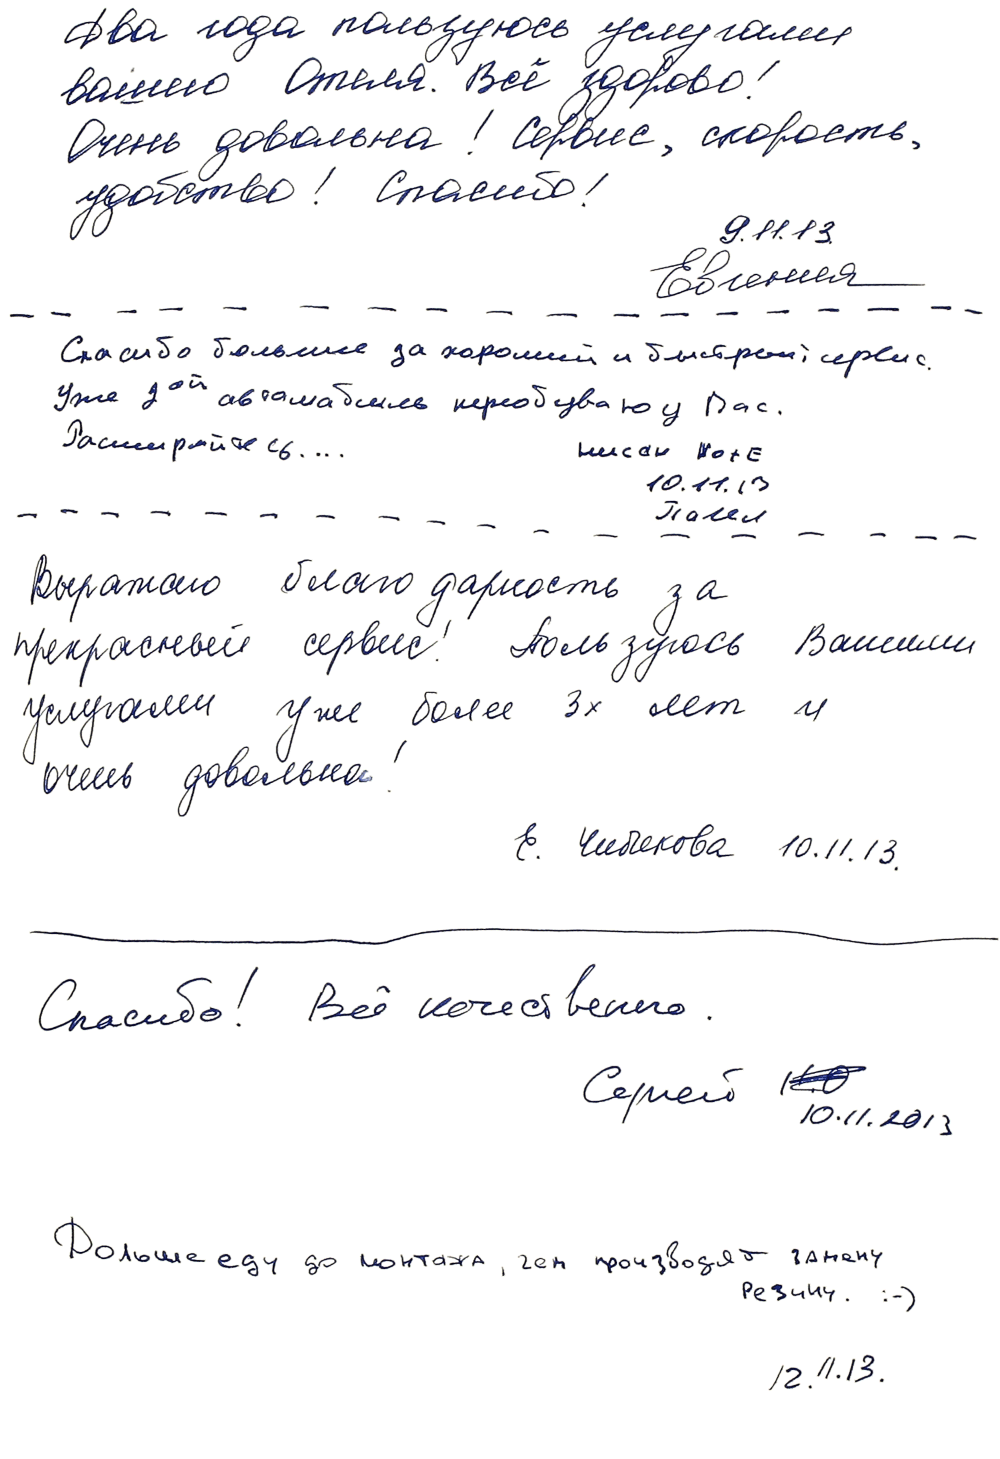 Два года пользуюсь услугами
вашего Отеля. Всё здорово!
Очень довольна! Сервис, скорость,
удобство! Спасибо!
9.11.13.
Евгения
Спасибо большое за хороший и быстрый сервис.
Уже 2ой автомабиль переобуваю у Вас.
Расширяйтесь....
нисан NotE
10.11.13
Павел
Выражаю благодарность за
прекрасный сервис! Пользуюсь Вашими
услугами уже более 3х лет и
очень довольна!
Е. 10.11.13.
Спасибо! Всё качественно.
Сергей
10.11.2013
Дольше еду до монтажа, чем производят замену
резины. :-)
12.11.13.